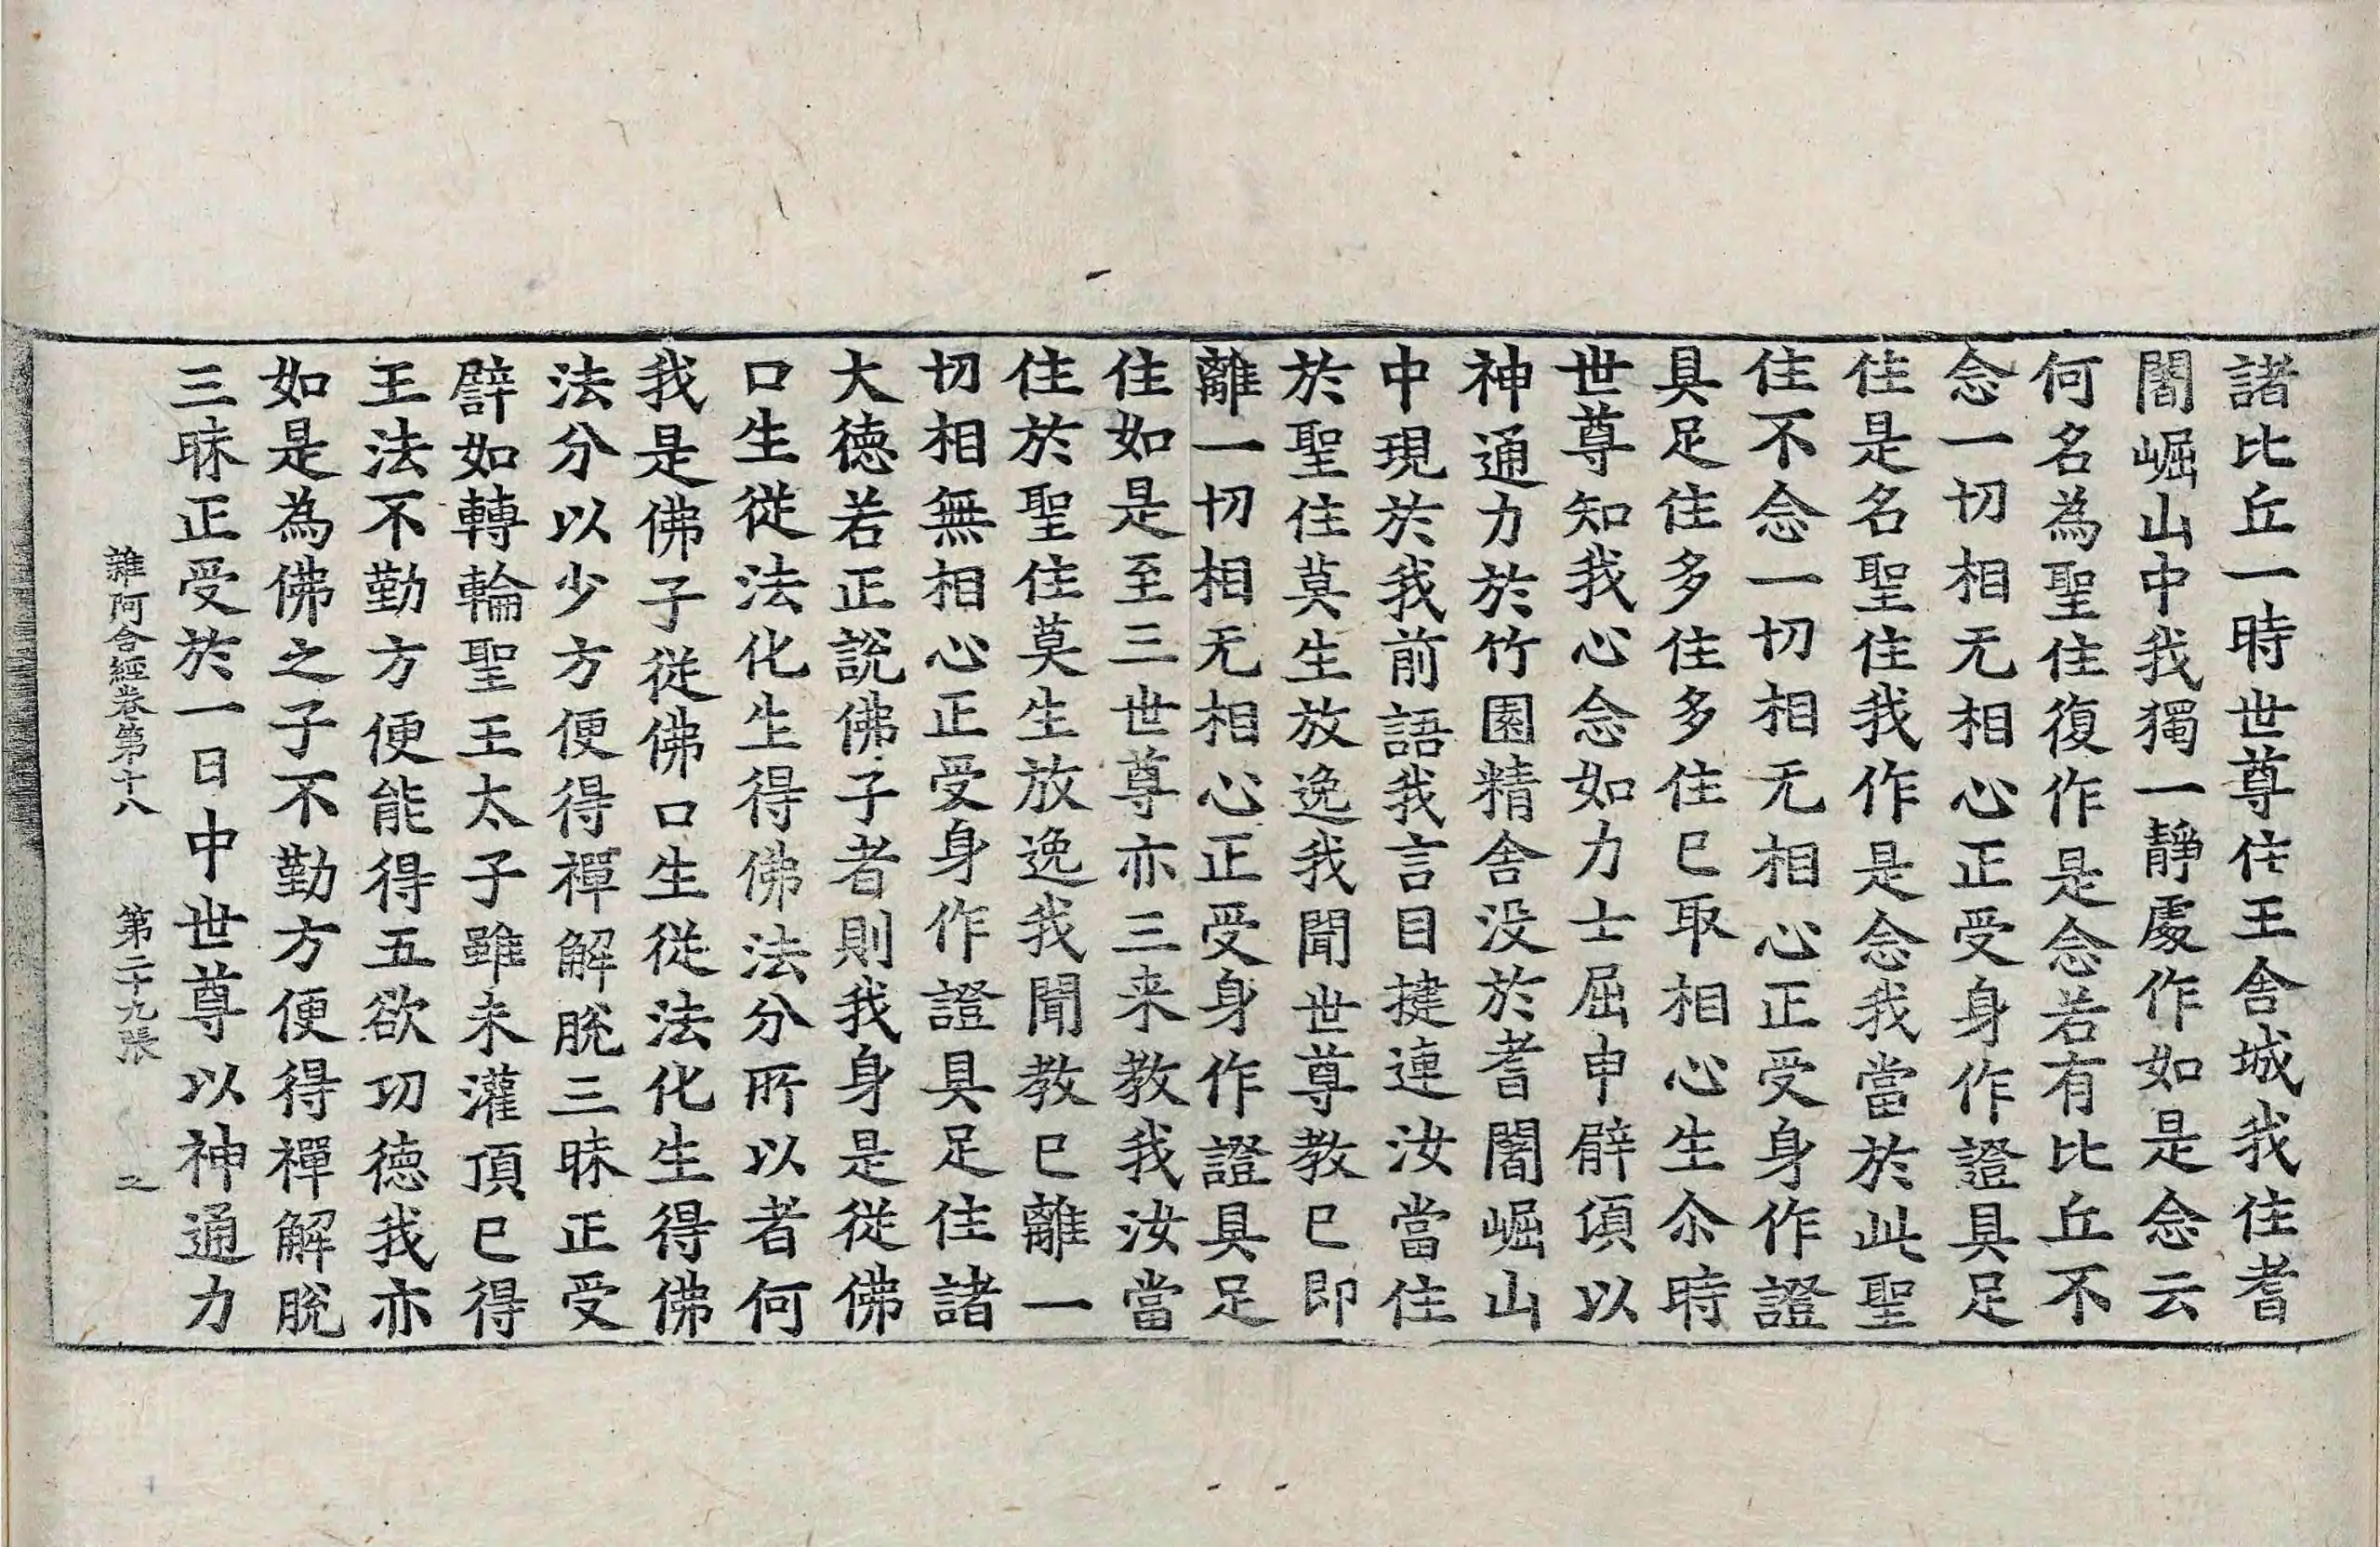 諸比丘一時世尊住王舍城我住耆
闍崛山中我獨一靜處作如是念云
何名為聖住復作是念若有比丘不
念一切相无相心正受身作證具足
住是名聖住我作是念我當於此聖
住不念一切相无相心正受身作證
具足住多住多住已取相心生尒時
世尊知我心念如力士屈申臂頃以
神通力於竹園精舍没於耆闍崛山
中現於我前語我言目揵連汝當住
於聖住莫生放逸我聞世尊教已即
離一切相无相心正受身作證具足
住如是至三世尊亦三来教我汝當
住於聖住莫生放逸我聞教已離一
切相無相心正受身作證具足住諸
大德若正說佛子者則我身是從佛
口生從法化生得佛法分所以者何
我是佛子從佛口生從法化生得佛
法分以少方便得禪解脫三昧正受
譬如轉輪聖王太子雖未灌頂已得
王法不勤方便能得五欲功德我亦
如是為佛之子不勤方便得禪解脫
三昧正受於一日中世尊以神通力
雜阿含經卷第十八 第二十九張 之